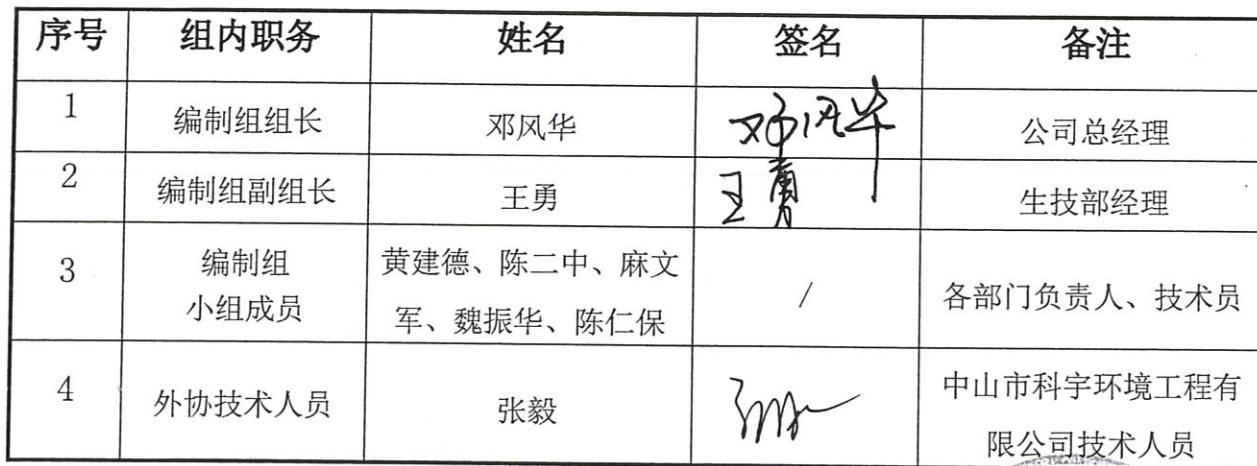 序号 组内职务 姓名 签名 备注
1 编制组组长 邓风华 邓风华 公司总经理
2 编制组副组长 王勇 王勇 生技部经理
3 编制组 小组成员 黄建德、陈二中、麻文 军、魏振华、陈仁保 / 各部门负责人、技术员
4 外协技术人员 张毅 中山市科宇环境工程有 限公司技术人员